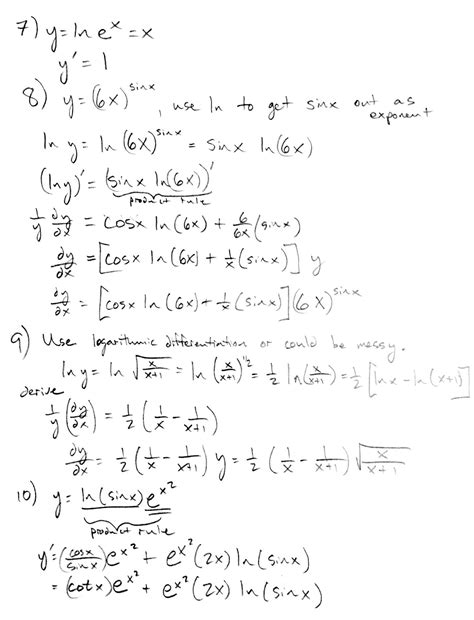 7) y = ln e^x = x
y' = 1
8) y = (6x)^sinx , use ln to get sinx out as exponent
ln y = ln (6x)^sinx = sinx ln(6x)
(lny)' = (sinx ln(6x))'
product rule
1/y ∂y/∂x = cosx ln(6x) + 6/6x (sinx)
∂y/∂x = [cosx ln(6x) + 1/x (sinx)] y
∂y/∂x = [cosx ln(6x) + 1/x (sinx)] (6x)^sinx
9) Use logarithmic differentiation or could be messy.
ln y = ln √(x/(x+1)) = ln (x/(x+1))^1/2 = 1/2 ln(x/(x+1)) = 1/2 [ln x - ln(x+1)]
derive
1/y (∂y/∂x) = 1/2 (1/x - 1/(x+1))
∂y/∂x = 1/2 (1/x - 1/(x+1)) y = 1/2 (1/x - 1/(x+1)) √(x/(x+1))
10) y = ln(sinx) e^x^2
product rule
y' = (cosx/sinx) e^x^2 + e^x^2 (2x) ln(sinx)
= (cotx) e^x^2 + e^x^2 (2x) ln(sinx)